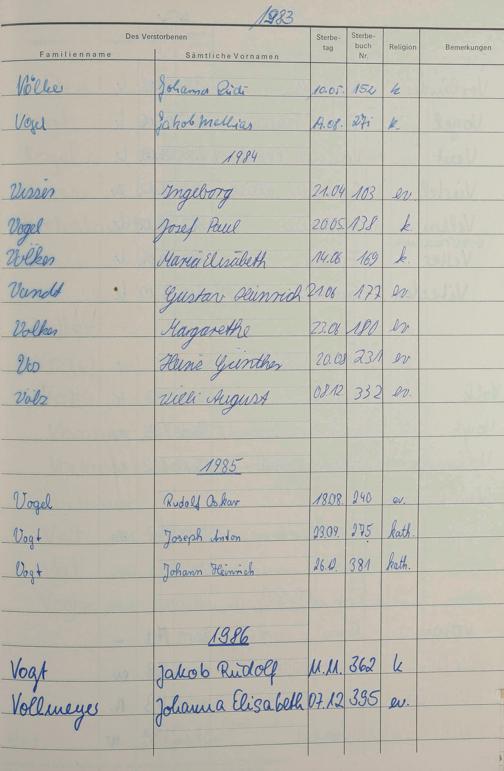 1983
Des Verstorbenen Sterbe- Sterbe- Religion Bemerkungen
Familienname Sämtliche Vornamen tag buch Nr.
Völker Johanna 10.05. 152 k
Vogel Jakob Mathias 27i k.
1984
Visser Ingeborg 21.04 103 ev.
Vogel Josef Paul 20.05. 138 k
Völker Maria Elisabeth 14.06 169 k.
Vundt Gustav Heinrich 21.06 177 ev.
Volker Margarethe 23.06 181 ev
Vos Heinz Günther 20.08 231 ev
Volz Willi August 08.12 332 ev.
1985
Vogel Rudolf Oskar 18.08. 240 ev.
Vogt Joseph Anton 23.09. 275 kath.
Vogt Johann Heinrich 381 kath.
1986
Vogt Jakob Rudolf 11.11. 362 k
Vollmeyer Johanna Elisabeth 07.12 395 ev.